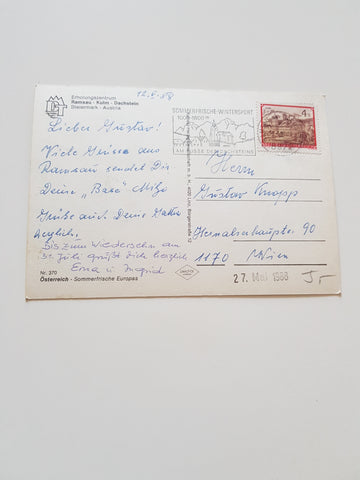 Erholungszentrum
Ramsau · Kulm · Dachstein
Steiermark - Austria
12.5.88
Lieber Gustav!
Viele Grüsse aus
Ramsau sendet Dir
Deine „Base" Mitzi
Grüße auch Deine Mutter
herzlich.
Bis zum Wiedersehn am
31. Juli grüßt Dich herzlich
Erna u. Ingrid
Nr. 370
Österreich - Sommerfrische Europas
SOMMERFRISCHE-WINTERSPORT
AM FUSSE DES DACHSTEINS
4
Herrn
Gustav Knopp
Hernalserhauptstr 90
1170 Wien
27. Mai 1988